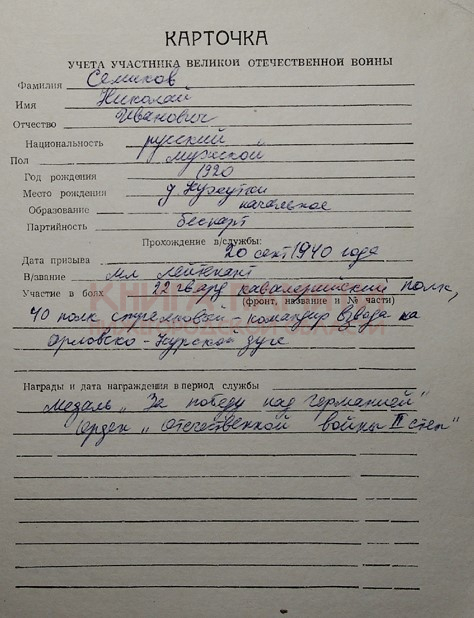 КАРТОЧКА
УЧЕТА УЧАСТНИКА ВЕЛИКОЙ ОТЕЧЕСТВЕННОЙ ВОЙНЫ
Фамилия Семиков
Имя Николай
Отчество Иванович
Национальность русский
Пол мужской
Год рождения 1920
Место рождения д. Нужутки
Образование начальное
Партийность беспарт
Прохождение в/службы:
Дата призыва 20 сент 1940 года
В/звание мл лейтенант
Участие в боях 22 гвард кавалерийский полк,
(фронт, название и № части)
40 полк стрелковой - командир взвода на
Орловско - Курской дуге
Награды и дата награждения в период службы
Медаль „За победу над Германией"
Орден „Отечественной войны II степ"